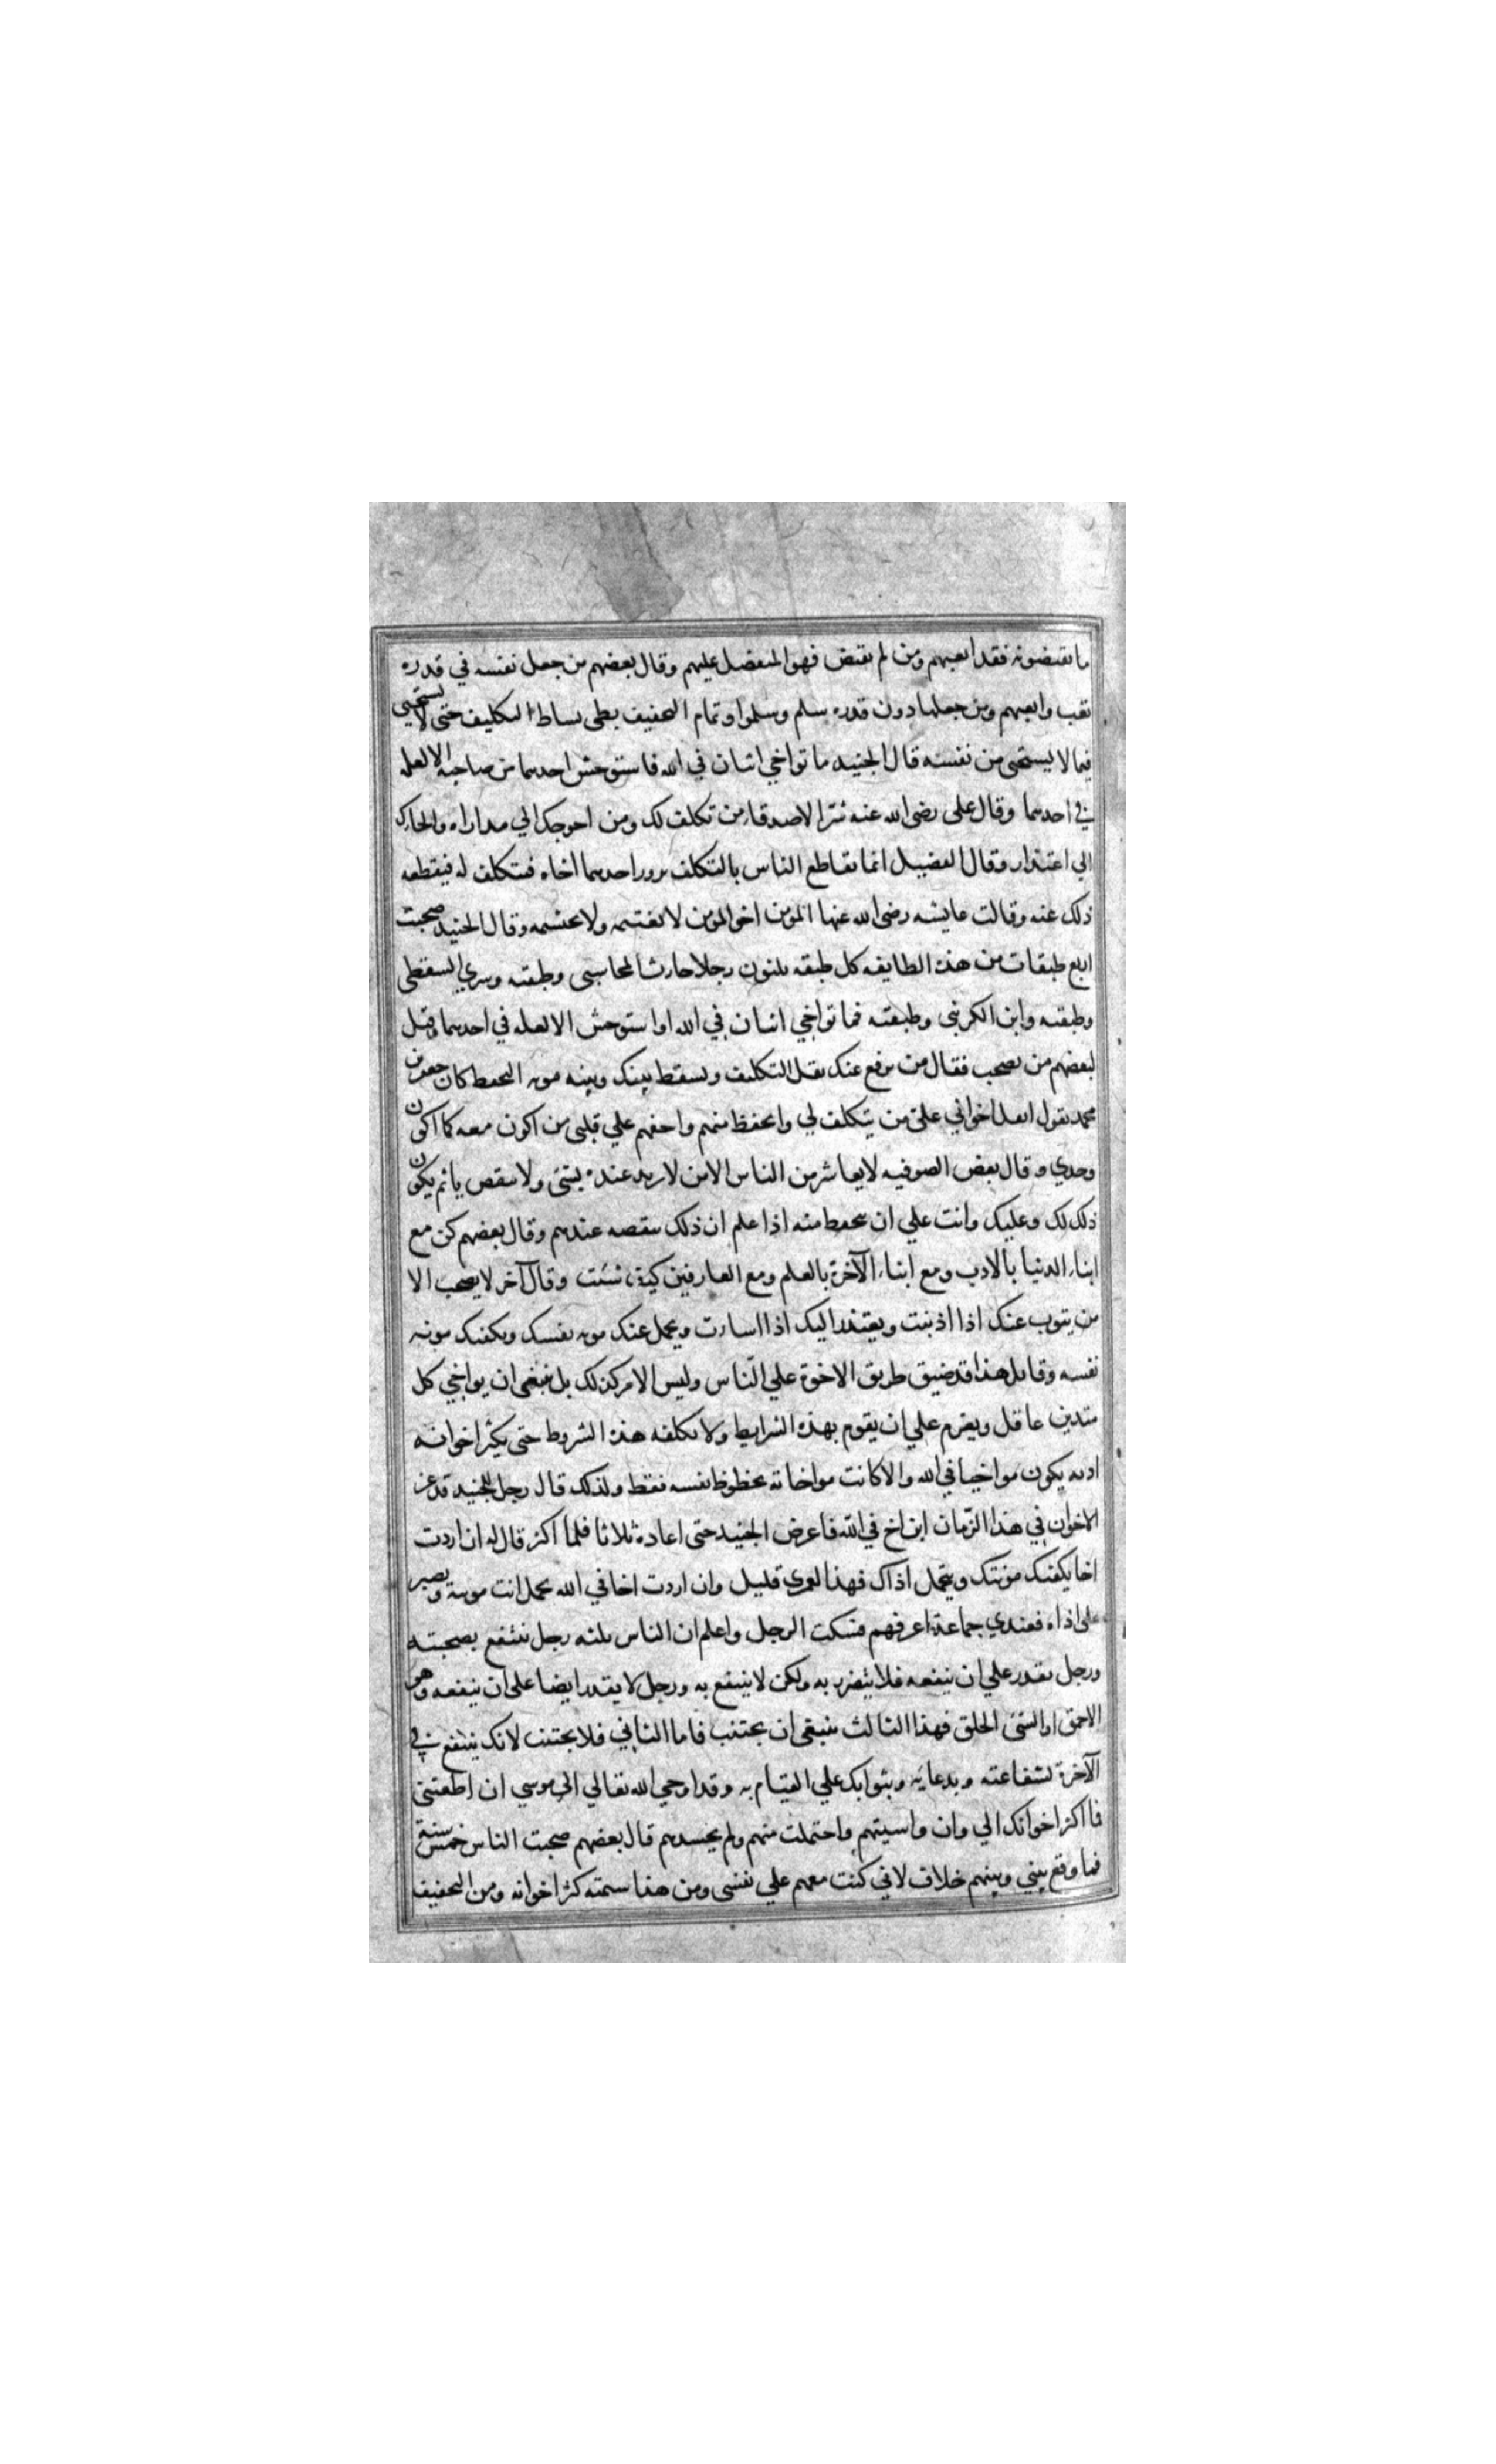 ما يقتضونه فقد اتعبهم ومن لم يقتض فهو المتفضل عليهم وقال بعضهم من جعل نفسه في قدره
تعب واتعبهم ومن جعلها دون قدره سلم وسلموا وتمام التخفيف بطى بساط التكليف حتى لا يستحيى
فيما لا يستحيى من نفسه قال الجنيد ما تواخي اثنان في الله فاستوحش احدهما من صاحبه الا لعله
في احدهما وقال على رضى الله عنه شر الاصدقا من تكلف لك ومن احوجك الي مداراه والجاك
الي اعتذار وقال الفضيل انما تقاطع الناس بالتكلف يزور احدهما اخاه فيتكلف له فيقطعه
ذلك عنه وقالت عايشه رضى الله عنها المؤمن اخو المؤمن لا يغتنمه ولا يحتشمه وقال الجنيد صحبت
اربع طبقات من هذه الطايفه كل طبقه ثلثون رجلا حارثا المحاسبى وطبقته وسري السقطى
وطبقته وابن الكرنبى وطبقته فما تواخي اثنان في الله او استوحش الا لعله في احدهما وقيل
لبعضهم من نصحب فقال من يرفع عنك ثقل التكليف ويسقط بينك وبينه مونه التحفظ كان جعفر بن
محمد يقول اثقل اخواني على من يتكلف لي واتحفظ منهم واخفهم علي قلبى من اكون معه كما اكون
وحدي وقال بعض الصوفيه لا يعاشر من الناس الا من لا يزيد عنده بشى ولا ينقص باثم يكون
ذلك لك وعليك وانت علي ان تحفظ منه اذا علم ان ذلك ينقصه عندهم وقال بعضهم كن مع
ابناء الدنيا بالادب ومع ابناء الآخرة بالعلم ومع العارفين كيف شئت وقال آخر لا يصحب الا
من يتوب عنك اذا اذنبت ويعتذر اليك اذا اسارت ويحمل عنك مونه نفسك ويكفيك مونه
نفسه وقايل هذا قد ضيق طريق الاخوة علي الناس وليس الامر كذلك بل ينبغى ان يواخي كل
متدين عاقل ويعزم علي ان يقوم بهذه الشرايط ولا يكلفه هذه الشروط حتى يكثر اخوانه
اذ به يكون مواخيا في الله والا كانت مواخاته بحظوظ نفسه فقط ولذلك قال رجل للجنيد قد عز
الاخوان في هذا الزمان اين اخ في الله فاعرض الجنيد حتى اعاده ثلاثا فلما اكثر قال له ان اردت
اخا يكفيك مونتك ويتحمل اذاك فهذا لعمرى قليل وان اردت اخا في الله تحمل انت مونته وتصبر
على اذاه فعندي جماعة اعرفهم فسكت الرجل واعلم ان الناس ثلثه رجل ينتفع بصحبته
ورجل تقدر علي ان ينفعه فلا يتضرر به ولكن لا ينتفع به ورجل لا يقدر ايضا على ان ينفعه وهو
الاحمق او السئ الخلق فهذا الثالث ينبغى ان يجتنب فاما الثاني فلا يجتنب لانك ينتفع في
الآخرة لشفاعته وبدعايه وبثوابك علي القيام به وقد اوحي الله تعالي الي موسي ان اطعتنى
فما اكثر اخوانك الي وان واسيتهم واحتملت منهم ولم يحسدهم قال بعضهم صحبت الناس خمسين سنة
فما وقع بيني وبينهم خلاف لاني كنت معهم علي نفسى ومن هذا سمته كثر اخوانه ومن التخفيف